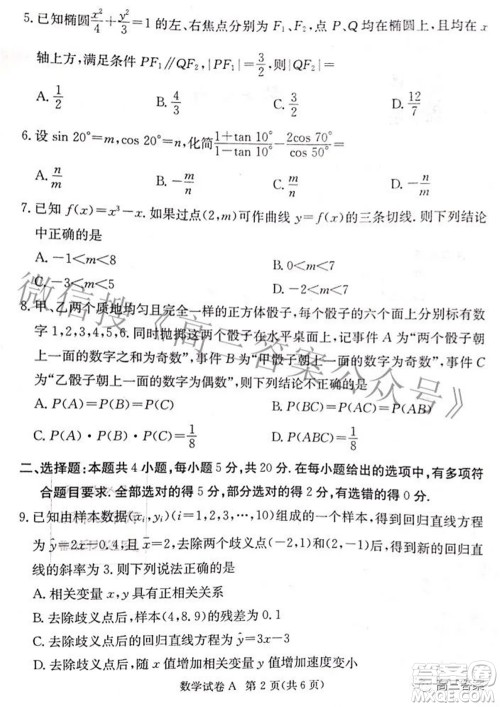 5. 已知椭圆x²/4+y²/3=1 的左、右焦点分别为 F₁、F₂, 点 P、Q 均在椭圆上, 且均在 x
轴上方, 满足条件 PF₁∥QF₂, |PF₁|=3/2, 则|QF₂|=
A. 1/2 B. 3/4 C. 9/10 D. 12/7
6. 设 sin 20°=m, cos 20°=n, 化简 (1+tan 10°)/(1-tan 10°) - (2cos 70°)/(2cos 60°) =
A. n/m B. -n/m C. m/n D. -m/n
7. 已知 f(x)=x³-x. 如果过点(2,m)可作曲线 y=f(x)的三条切线. 则下列结论
中正确的是
A. -1<m<8 B. 0<m<8
C. -2<m<7 D. -2<m<6
8. 甲、乙两个质地均匀且完全一样的正方体骰子, 每个骰子的六个面上分别标有数
字 1,2,3,4,5,6. 同时抛掷这两个骰子在水平桌面上, 记事件 A 为“两个骰子朝上
一面的数字之和为奇数”, 事件 B 为“甲骰子朝上一面的数字为奇数”, 事件 C
为“乙骰子朝上一面的数字为偶数”, 则
A. P(A)=P(B)=P(C) B. P(A)=P(B)<P(C)
C. P(B)=P(C)=1/8 D. P(ABC)=1/8
二、选择题: 本题共 4 小题, 每小题 5 分, 共 20 分. 在每小题给出的选项中, 有多项符
合题目要求. 全部选对的得 5 分, 部分选对的得 2 分, 有选错的得 0 分.
9. 已知由样本数据(xᵢ,yᵢ)(i=1,2,3,…,10)组成的一个样本, 得到回归直线方程为
ŷ=2x-0.4, 且x̄=2, 去除两个歧义点(-2,1)和(2,-1)后, 得到新的回归直
线的斜率为 3. 则下列说法正确的是
A. 相关变量 x, y 具有正相关关系
B. 去除歧义点后, 样本(4,8.9)的残差为 0.1
C. 去除歧义点后的回归直线方程为ŷ=3x-3
D. 去除歧义点后, 随 x 值增加相关变量 y 值增加速度变小
数学试卷 A 第 2 页(共 6 页)
微信搜《高三答案公众号》
高三答案